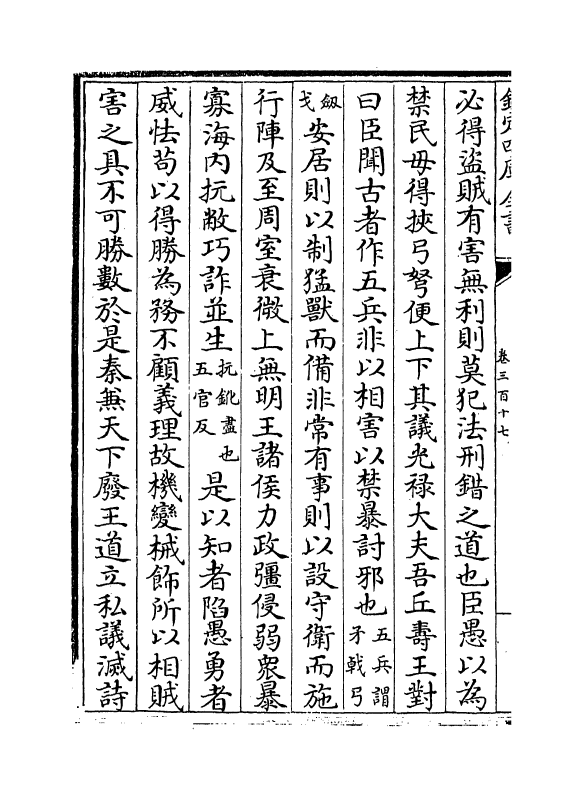 欽定四庫全書
卷三百十七
必得盜賊有害無利則莫犯法刑錯之道也臣愚以為
禁民毋得挾弓弩便上下其議光禄大夫吾丘壽王對
曰臣聞古者作五兵非以相害以禁暴討邪也五兵謂矛戟弓
劔戈安居則以制猛獸而備非常有事則以設守衛而施
行陣及至周室衰微上無明王諸侯力政彊侵弱衆暴
寡海内抏敝巧詐並生抏鈋盡也五官反是以知者陷愚勇者
威怯苟以得勝為務不顧義理故機變械飾所以相賊
害之具不可勝數於是秦兼天下廢王道立私議滅詩